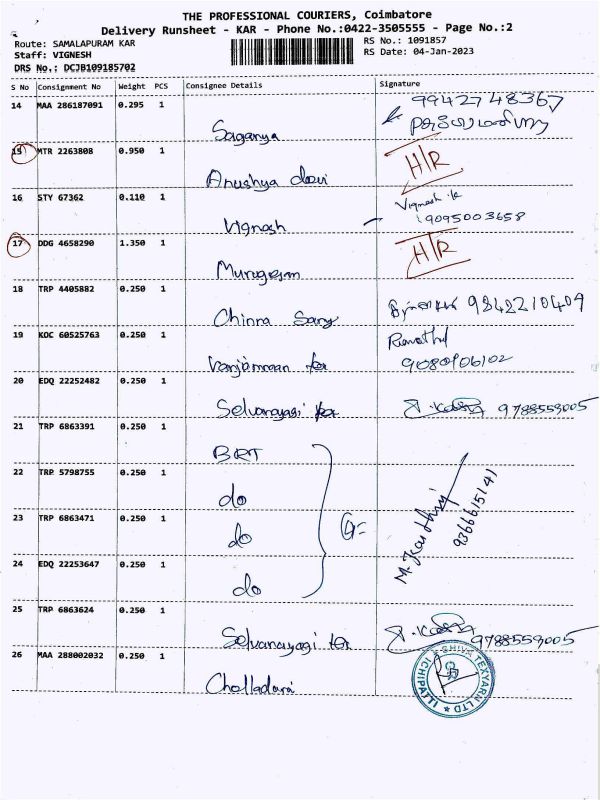 THE PROFESSIONAL COURIERS, Coimbatore
Delivery Runsheet - KAR - Phone No.:0422-3505555 - Page No.:2
Route: SAMALAPURAM KAR
Staff: VIGNESH
DRS No.: DCJB109185702
RS No.: 1091857
RS Date: 04-Jan-2023
S No Consignment No Weight PCS Consignee Details Signature
14 MAA 286187091 0.295 1 9942748367
Saganya
15 MTR 2263808 0.950 1 H/R
Anushya devi
16 STY 67362 0.110 1 Vignesh
Vignesh 9095003658
17 DDG 4658290 1.350 1 H/R
Murugesan
18 TRP 4405882 0.250 1 9842210409
Chinna Samy
19 KOC 60525763 0.250 1 Revathi
Vanjamman tex
20 EDQ 22252482 0.250 1
Selvanayagi tex 9788559005
21 TRP 6863391 0.250 1
BRT
22 TRP 5798755 0.250 1
do
M. Karthij
9366615141
23 TRP 6863471 0.250 1
do
24 EDQ 22253647 0.250 1
do
25 TRP 6863624 0.250 1
Selvanayagi tex 9788559005
26 MAA 288002032 0.250 1
Challadurai
SHIVA TEXYARN LTD
ICHIPATTI